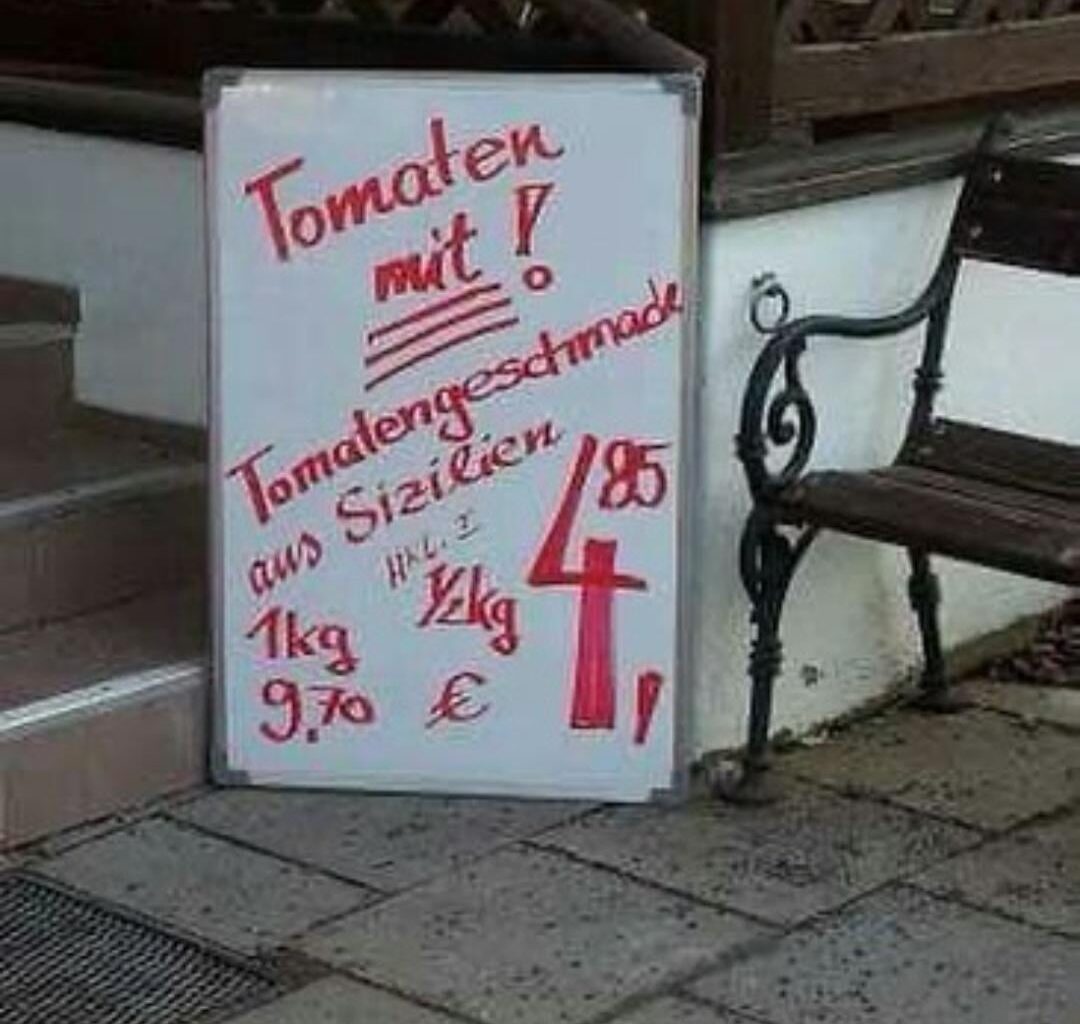 Tomaten
mit!
Tomatengeschmack
aus Sizilien
HKL. I
1/2 kg 4,85
1kg
9.70 €